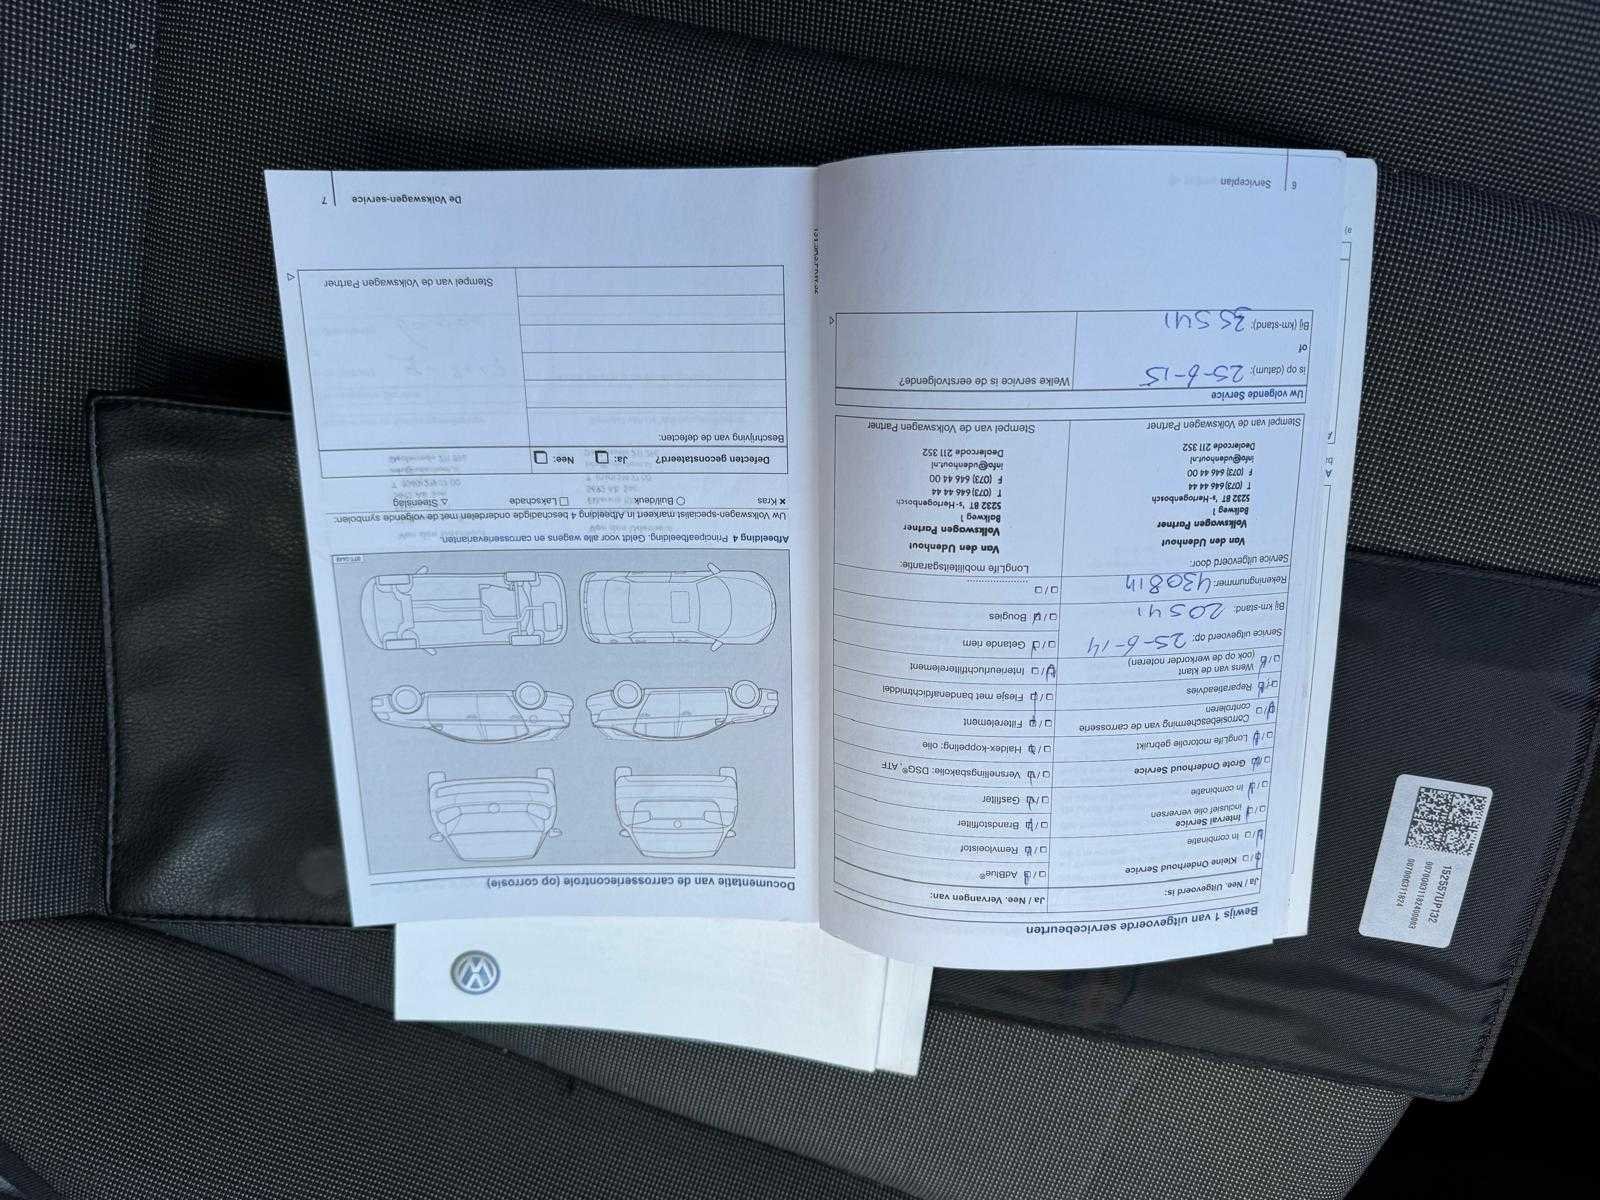 Bewijs 1 van uitgevoerde servicebeurten
Ja / Nee. Uitgevoerd is:
Kleine Onderhoud Service
In combinatie
Interval Service
inclusief olie verversen
In combinatie
Grote Onderhoud Service
LongLife motorolie gebruikt
Corrosiebescherming van de carrosserie
controleren
Reparatieadvies
Wens van de klant
(ook op de werkorder noteren)
Service uitgevoerd op: 25-6-14
Bij km-stand: 20541
Rekeningnummer:
Service uitgevoerd door:
Van den Udenhout
Volkswagen Partner
Balkweg 1
5232 BT 's-Hertogenbosch
T (073) 646 44 44
F (073) 646 44 00
info@udenhout.nl
Dealercode 211 352
Stempel van de Volkswagen Partner
Ja / Nee. Vervangen van:
AdBlue®
Remvloeistof
Brandstoffilter
Gasfilter
Versnellingsbakolie: DSG®, ATF
Haldex-koppeling: olie
Filterelement
Flesje met bandenafdichtmiddel
Interieurluchtfilterelement
Getande riem
Bougies
LongLife mobiliteitsgarantie:
Van den Udenhout
Volkswagen Partner
Balkweg 1
5232 BT 's-Hertogenbosch
T (073) 646 44 44
F (073) 646 44 00
info@udenhout.nl
Dealercode 211 352
Stempel van de Volkswagen Partner
Uw volgende Service
is op (datum): 25-6-15
of
Bij (km-stand): 35541
Welke service is de eerstvolgende?
6 Serviceplan
Documentatie van de carrosseriecontrole (op) corrosie)
Afbeelding 4 Principeafbeelding. Geldt voor alle wagens en carrosserievarianten.
Uw Volkswagen-specialist markeert in Afbeelding 4 beschadigde onderdelen met de volgende symbolen:
Kras Buil/deuk Lakschade Steenslag
Defecten geconstateerd? Ja: Nee:
Beschrijving van de defecten:
Stempel van de Volkswagen Partner
De Volkswagen-service 7
152557UP132